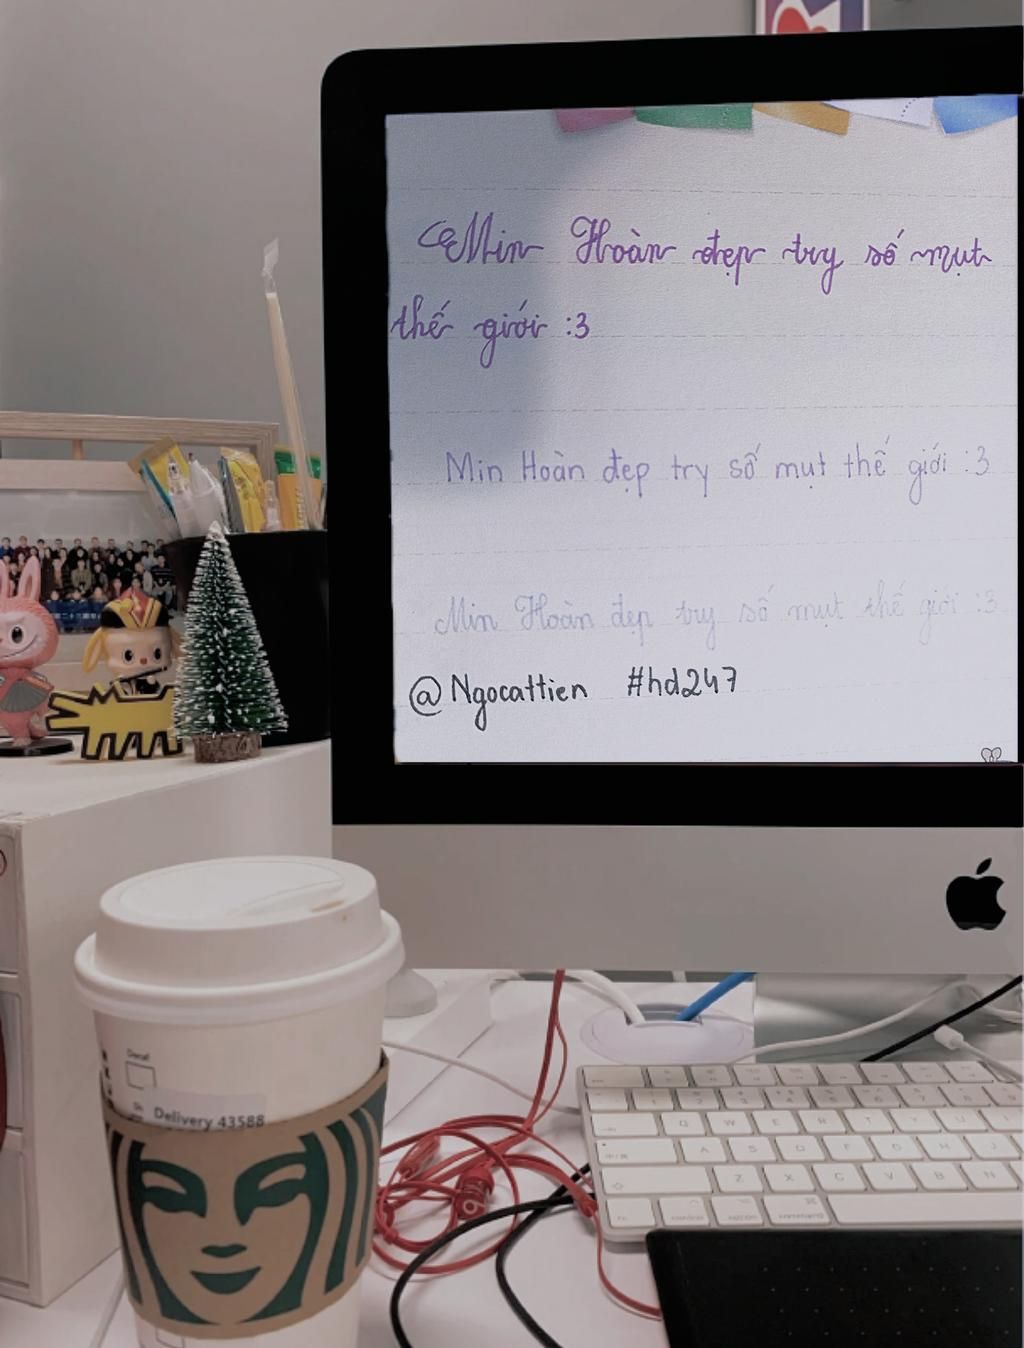 Min Hoàn đẹp try số mụt
thế giới :3
Min Hoàn đẹp try số mụt thế giới :3
Min Hoàn đẹp try số mụt thế giới :3
@Ngocattien #hd247
Decaf
Delivery 43588
Q W E R T Y U
A S D F G H J
Z X C V B N
fn control option command